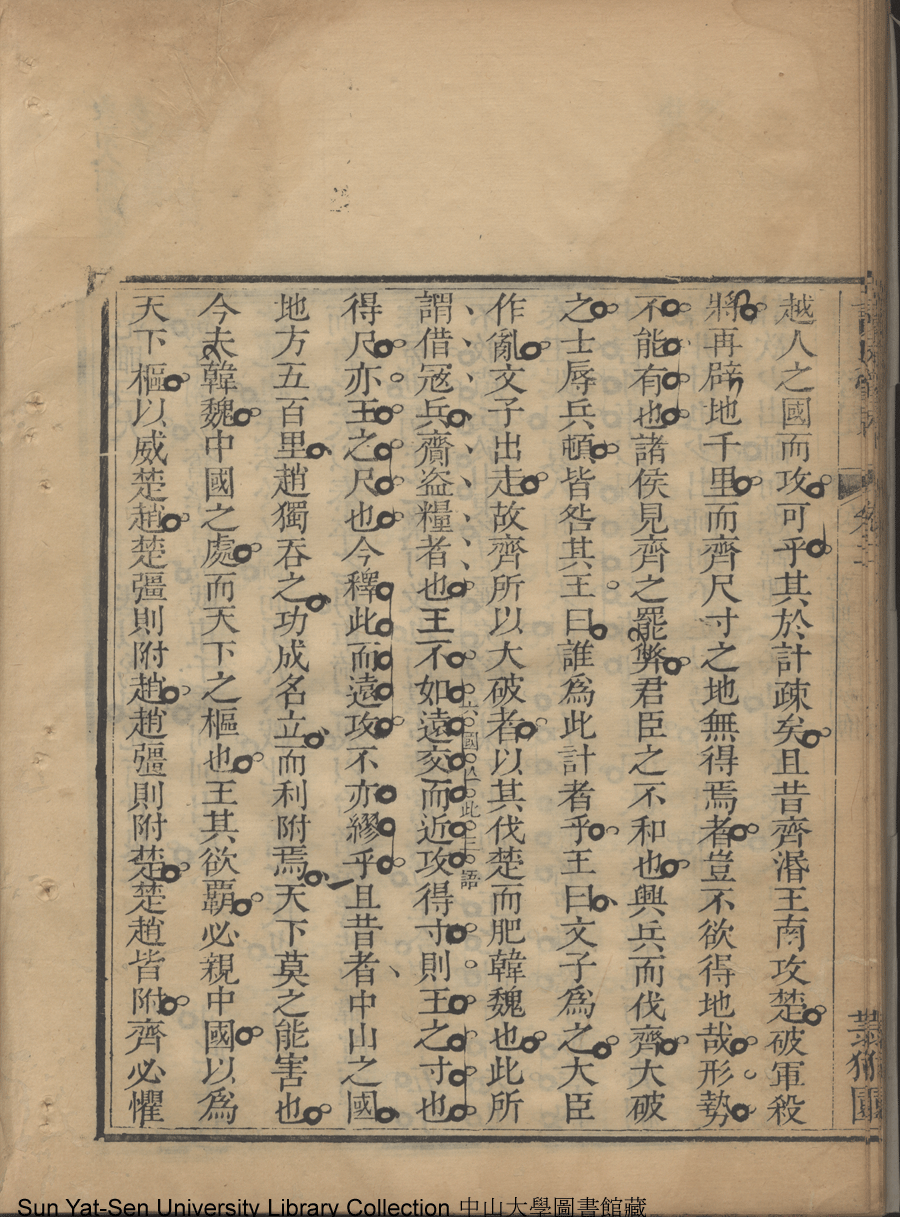 越人之國而攻可乎其於計疎矣且昔齊湣王南攻楚破軍殺
將再辟地千里而齊尺寸之地無得焉者豈不欲得地哉形勢
不能有也諸侯見齊之罷弊君臣之不和也興兵而伐齊大破
之士辱兵頓皆咎其王曰誰爲此計者乎王曰文子爲之大臣
作亂文子出走故齊所以大破者以其伐楚而肥韓魏也此所
謂借寇兵齎盗糧者也王不如遠交而近攻得寸則王之寸也
六國亡此三語
得尺亦王之尺也今釋此而遠攻不亦繆乎且昔者中山之國
地方五百里趙獨吞之功成名立而利附焉天下莫之能害也
今夫韓魏中國之處而天下之樞也王其欲覇必親中國以爲
天下樞以威楚趙楚彊則附趙趙彊則附楚楚趙皆附齊必懼
Sun Yat-Sen University Library Collection 中山大學圖書館藏